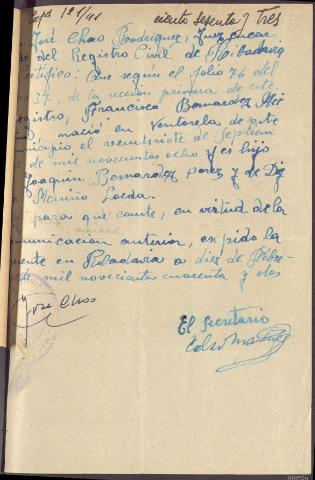 ciento sesenta y tres
José Chao Rodríguez, Juez encar
del Registro Civil de Ribadavia
ertifico: Que según el folio 76 del
37, de la sección primera de este
egistro, Francisco Bernardez
nació en Ventosela de este
nicipio el veintisiete de Septiem
de mil novecientos ocho y es hijo
Joaquin Bernardez perez y de
Meriño Losda.
para que conste, en virtud de la
omunicacion anterior, expido la
esente en Ribadavia a diez de Febre-
de mil novecientos cuarenta y dos
José Chao
El Secretario